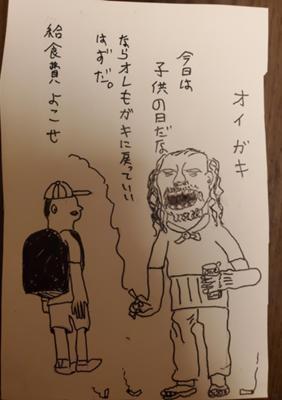 オイガキ
今日は
子供の日だな
ならオレもガキに戻っていい
はずだ。
給食費よこせ